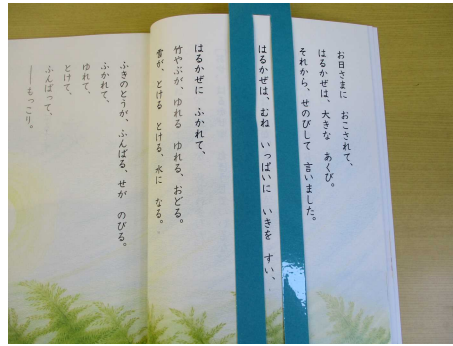 お日さまに おこされて、
はるかぜは、大きな あくび。
それから、せのびして 言いました。
はるかぜは、むね いっぱいに いきを すい、
はるかぜに ふかれて、
竹やぶが、ゆれる ゆれる、おどる。
雪が、とける とける、水に なる。
ふきのとうが、ふんばる、せが のびる。
ふかれて、
ゆれて、
とけて、
ふんばって、
――もっこり。